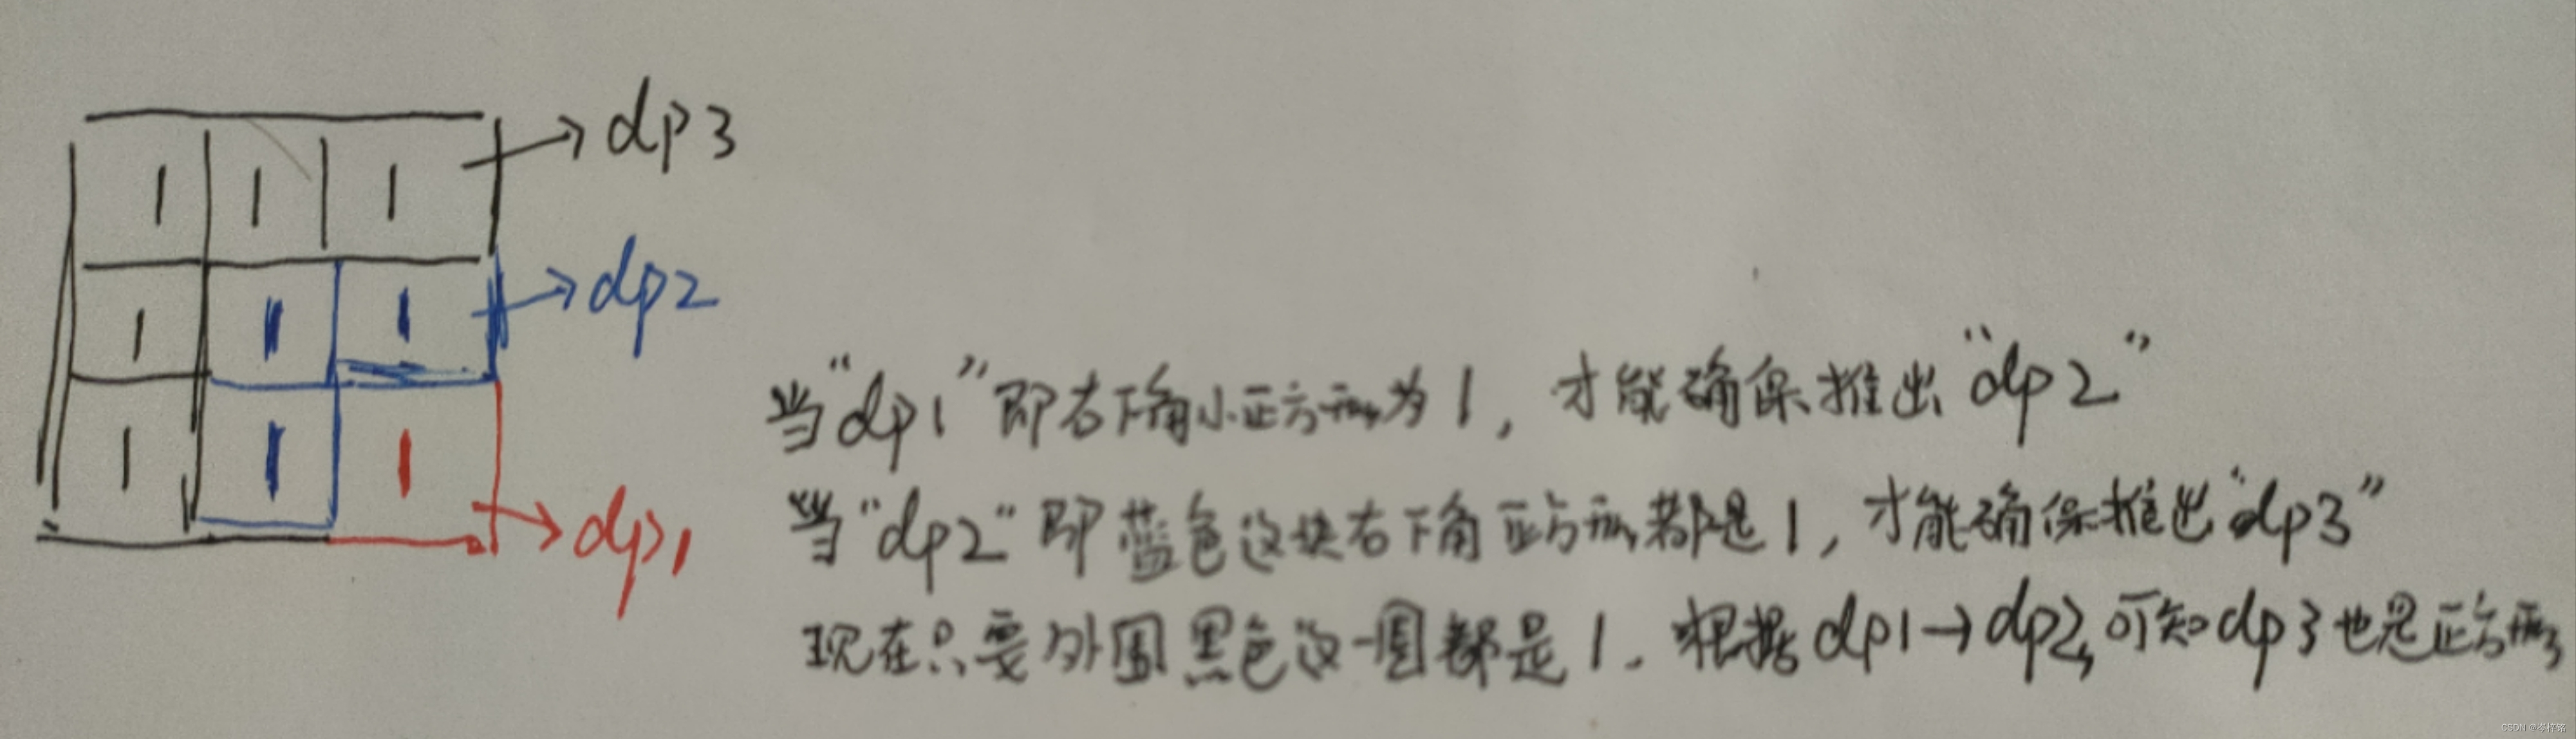 1 1 1 → dp3
1 1 1 → dp2
1 1 1 → dp1
当“dp1”即右下角小正方形为1，才能确保推出“dp2”
当“dp2”即蓝色这块右下角正方形都是1，才能确保推出“dp3”
现在只要外围黑色这一圈都是1. 根据dp1→dp2, 可知dp3也是正方形
CSDN @岑梓铭